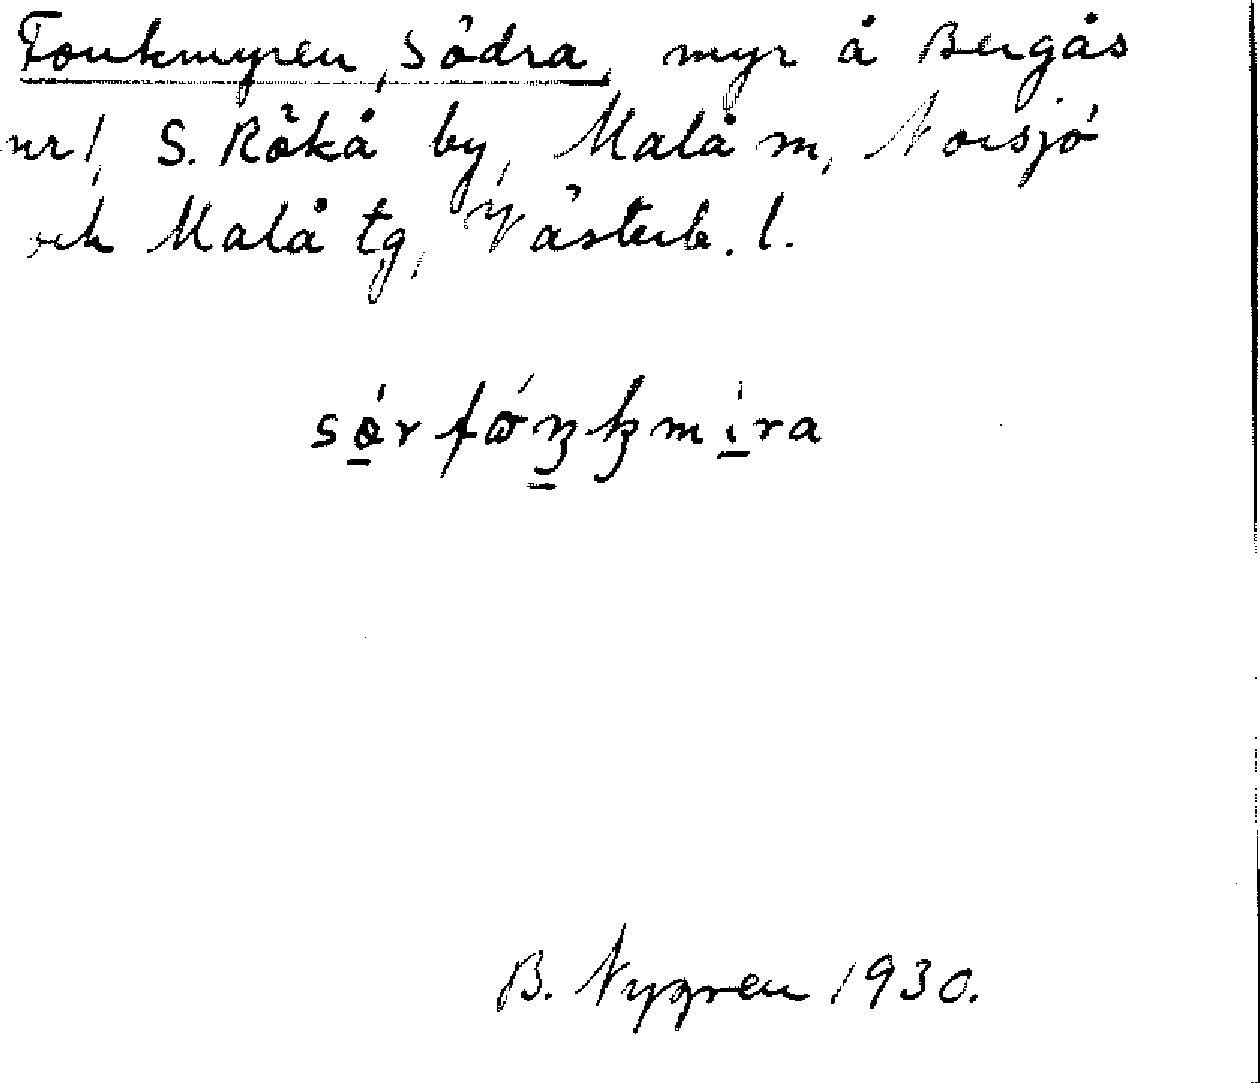 Fonkmyren, Södra, myr å Bergås
nr 1, S. Rökå by, Malå m, Norsjö
och Malå tg, Västerb. l.
B. Nygren 1930.